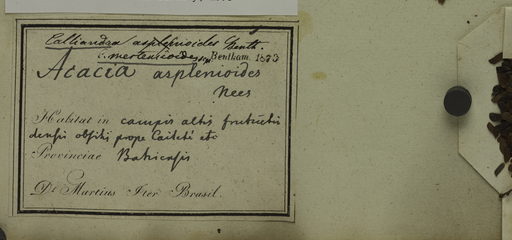 Calliandra asplenioides Benth.
c. mertensioides Bentham. 1873
Acacia asplenioides
Nees
Habitat in campis altis fruticetis
densis obsitis prope Caiteté etc
Provinciae Bahiensis
Dr. Martius Iter Brasil.